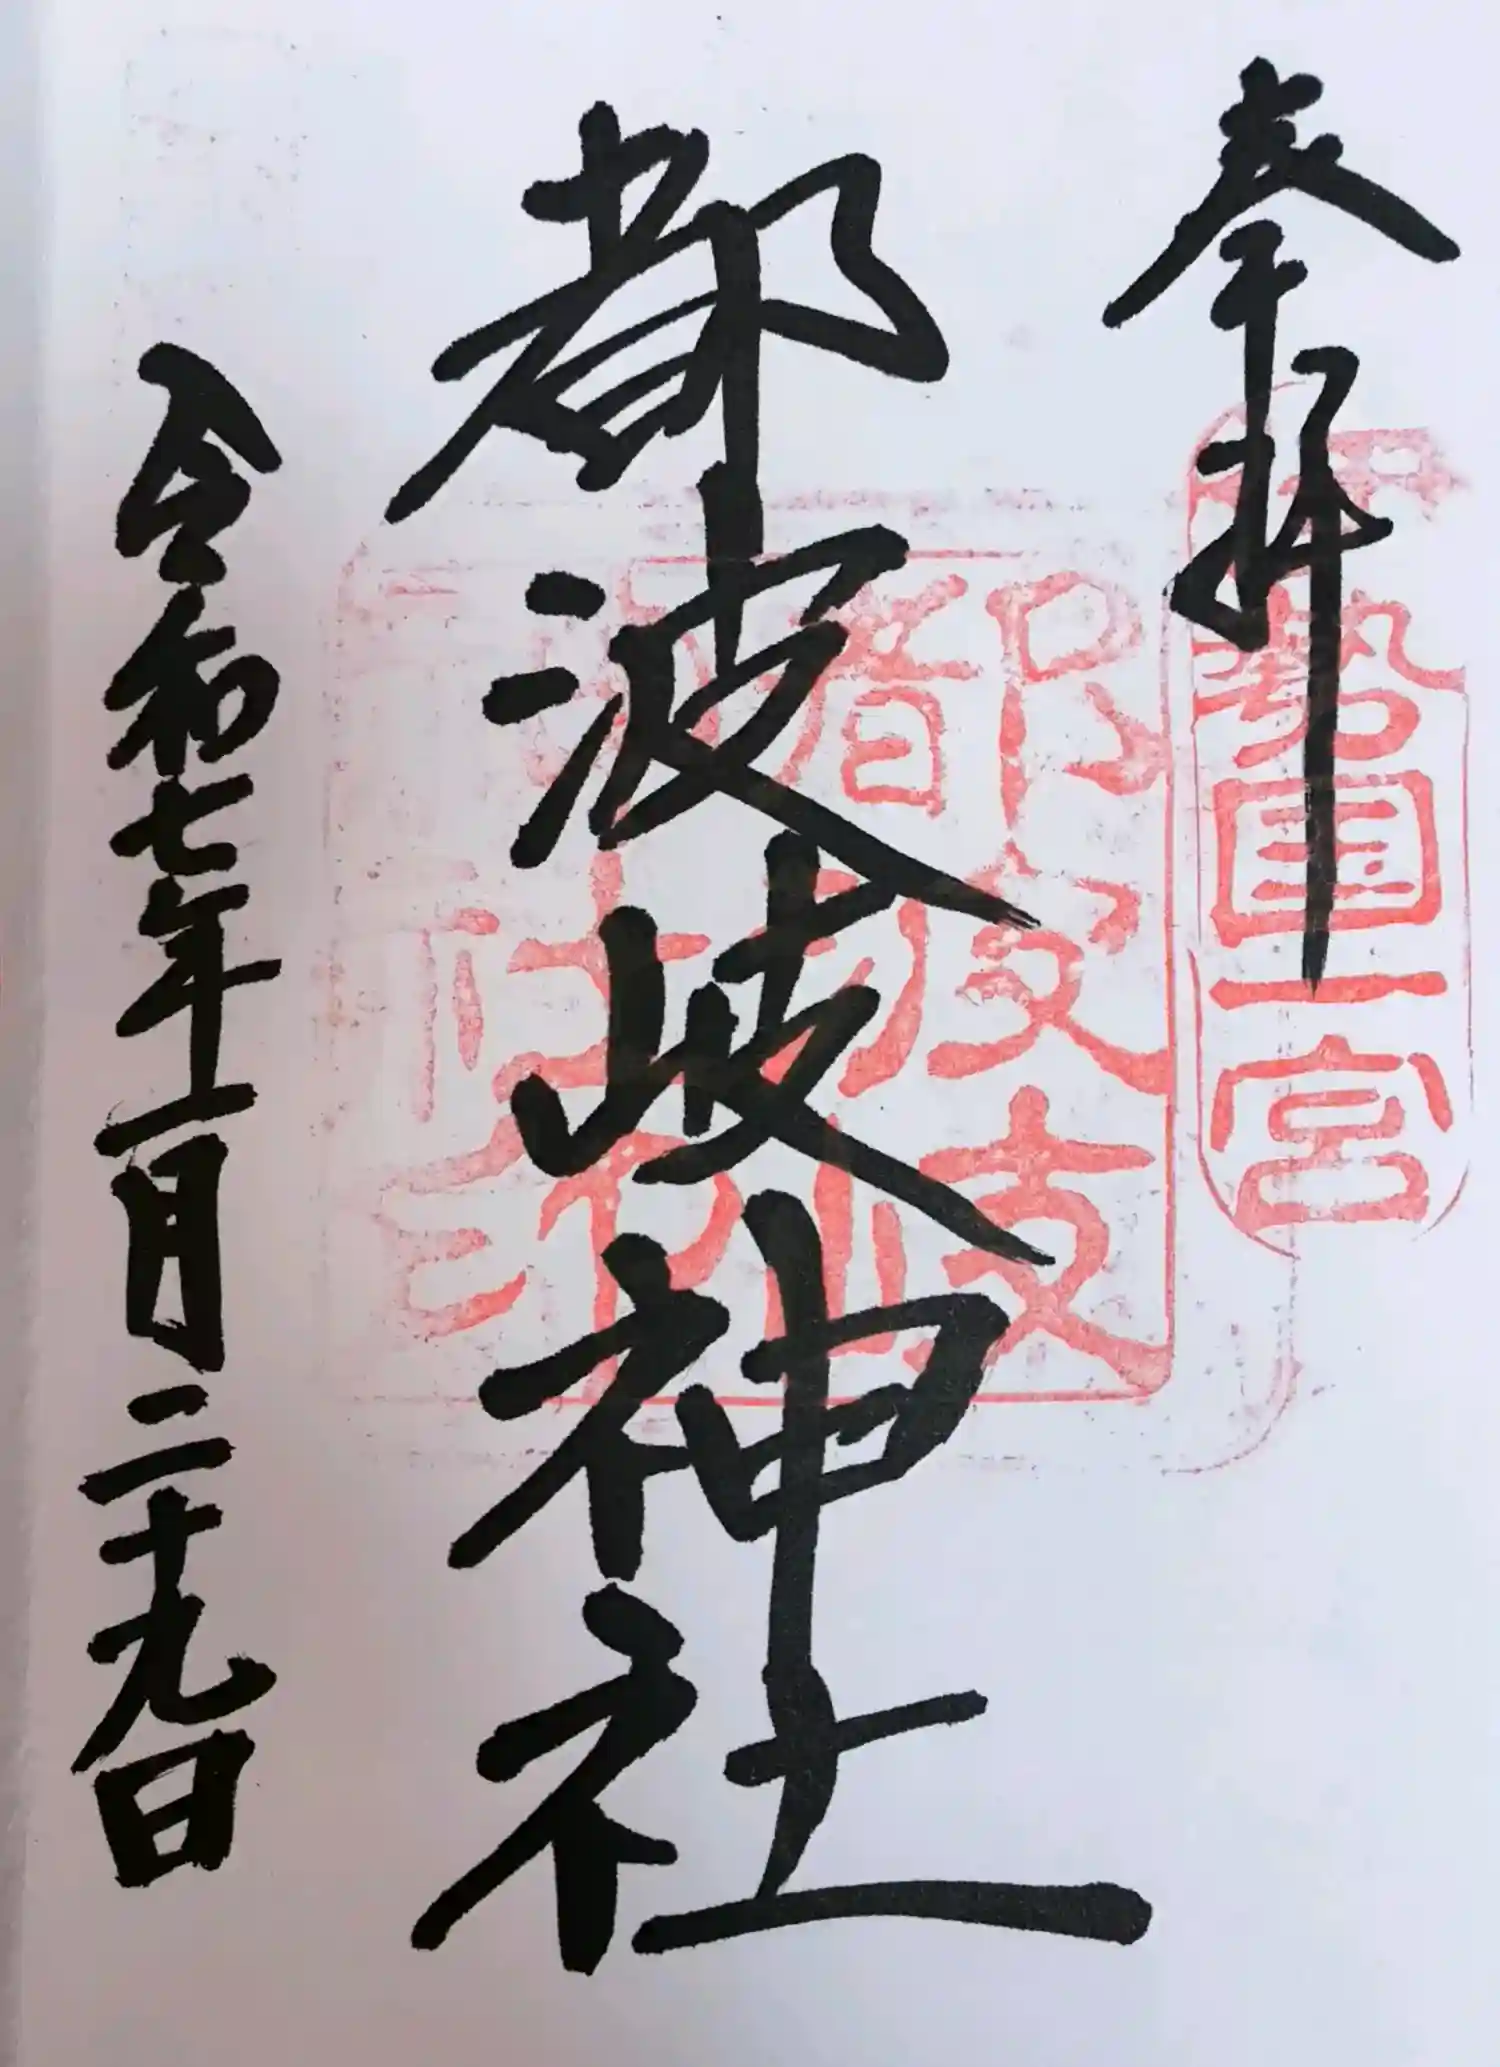 奉拝
伊勢国一宮
都波岐神社
都波岐
令和七年一月二十九日